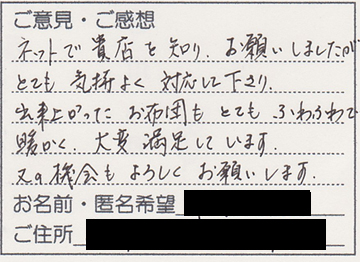 ご意見・ご感想
ネットで貴店を知り、お願いしましたが
とても気持よく対応して下さり、
出来上がったお布団もとてもふわふわで
暖かく、大変満足しています。
又の機会もよろしくお願いします。
お名前・匿名希望
ご住所